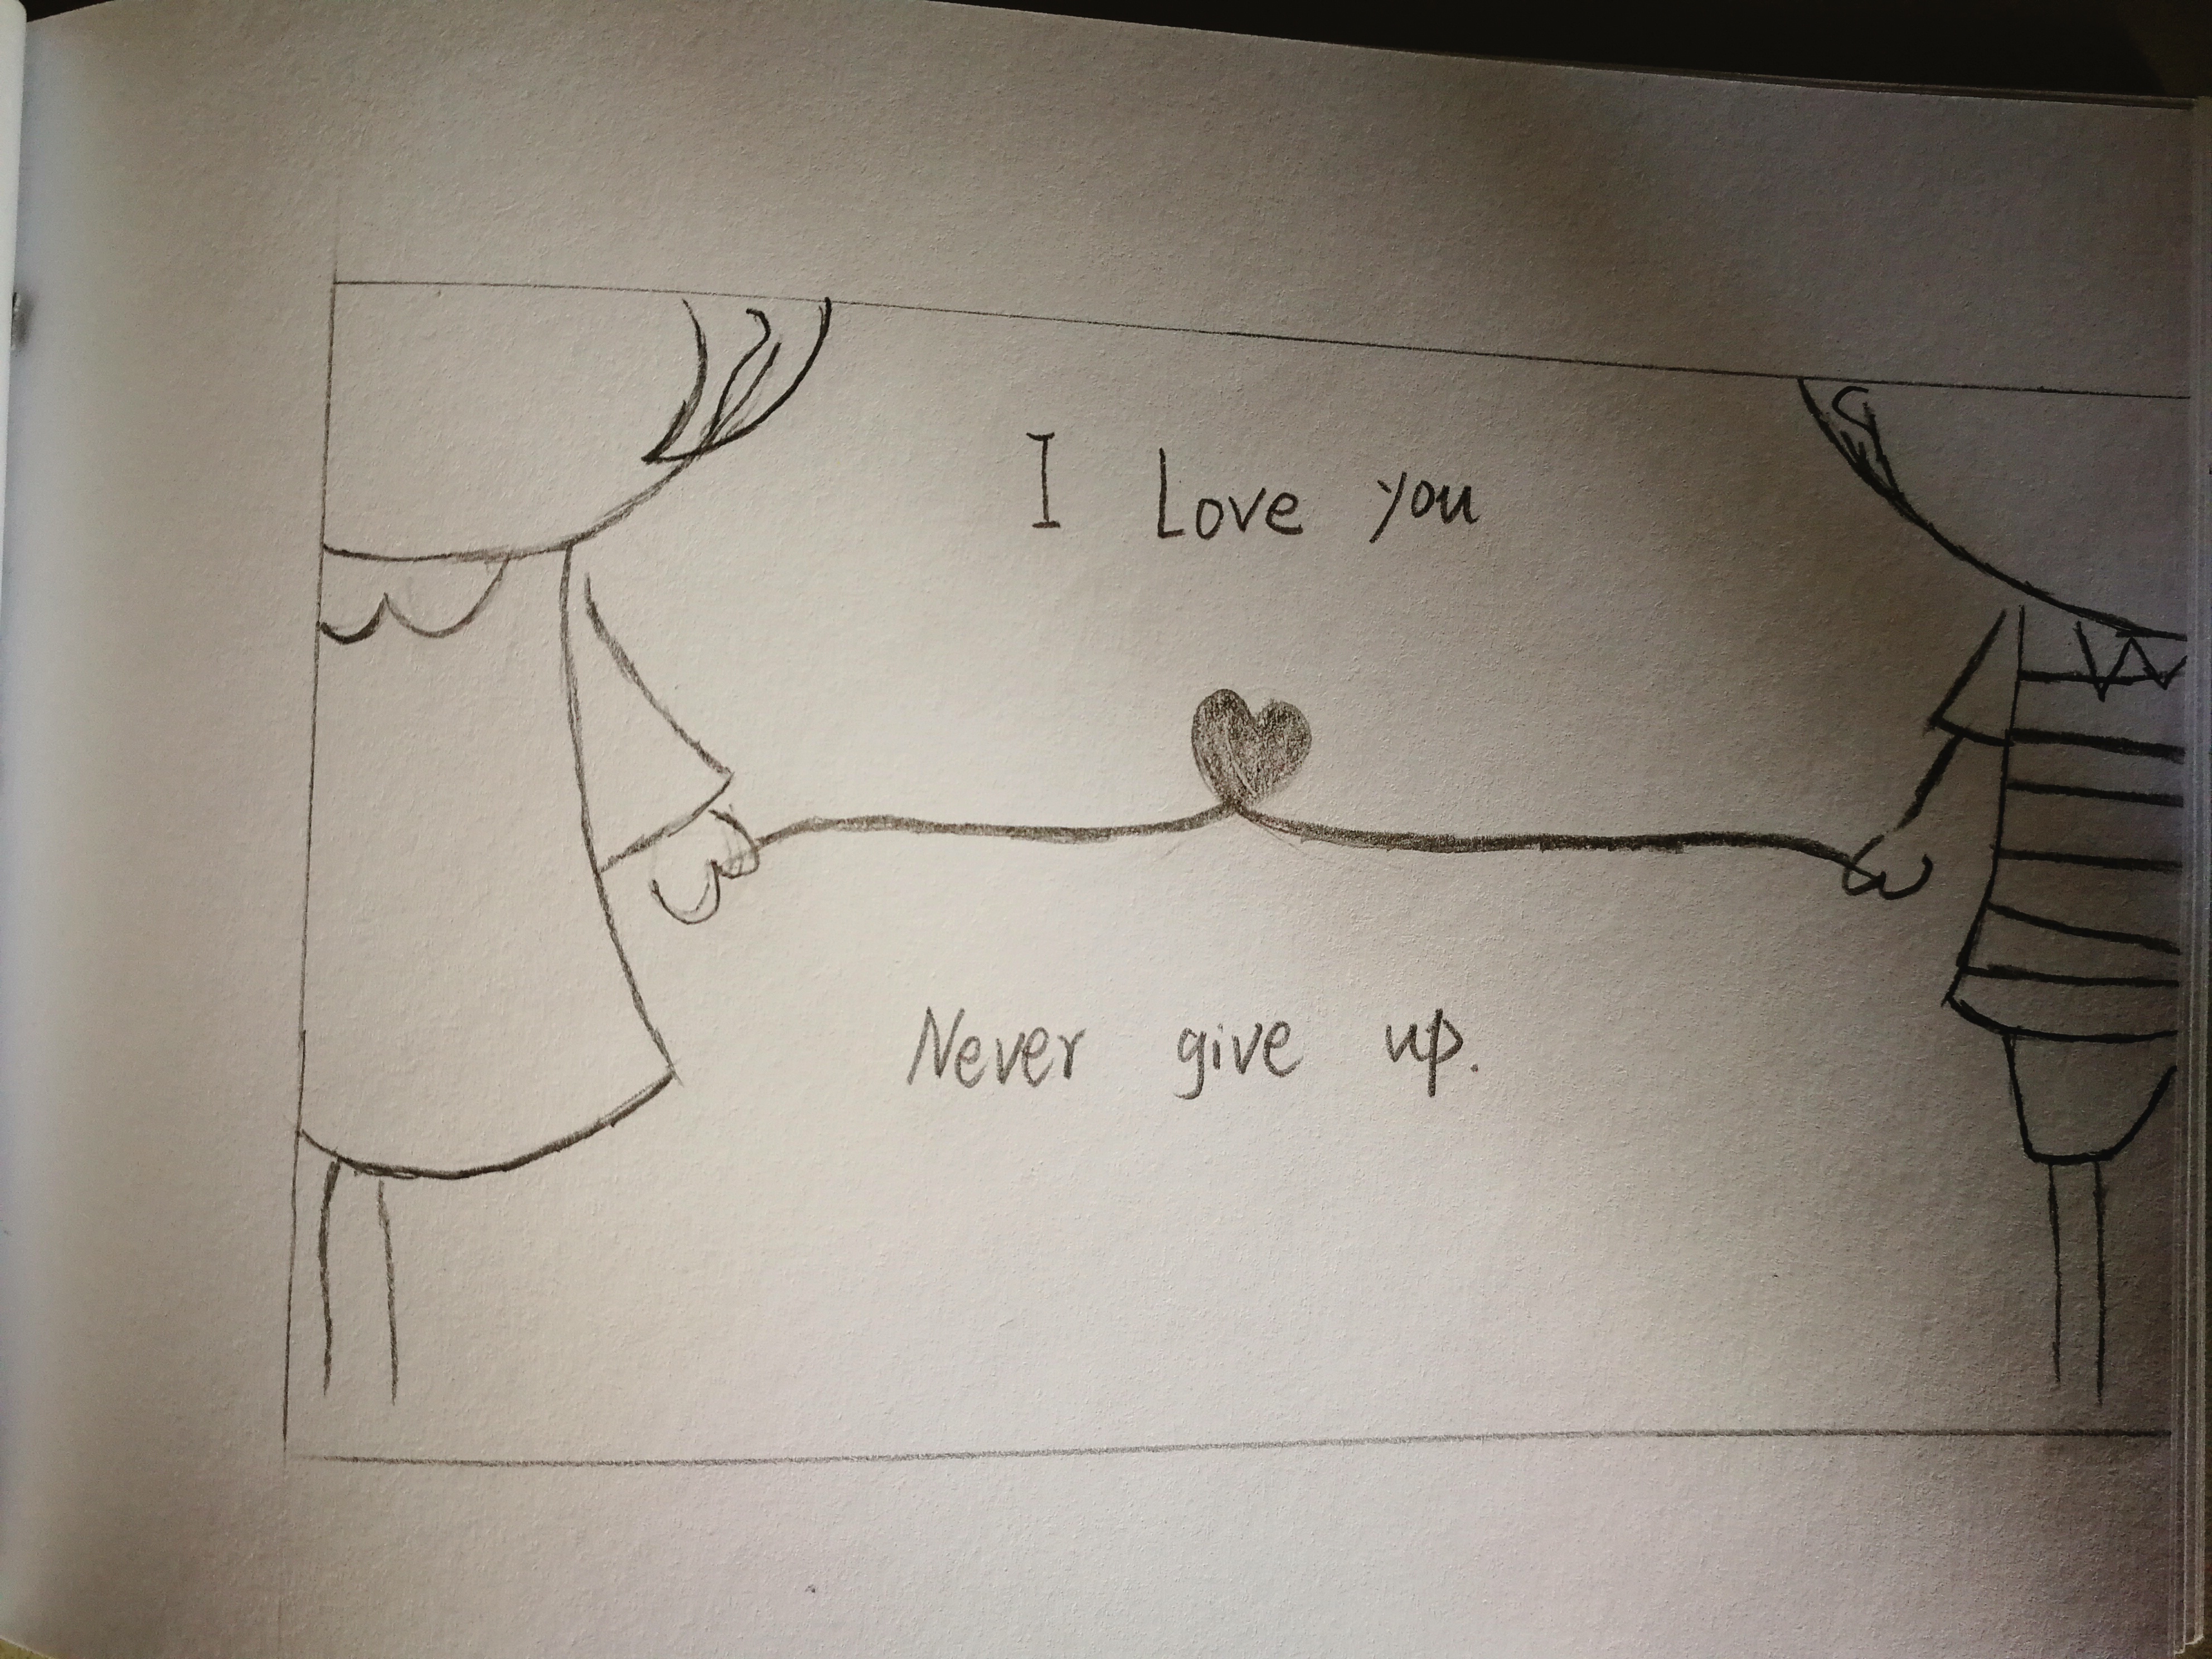 I Love you
Never give up.